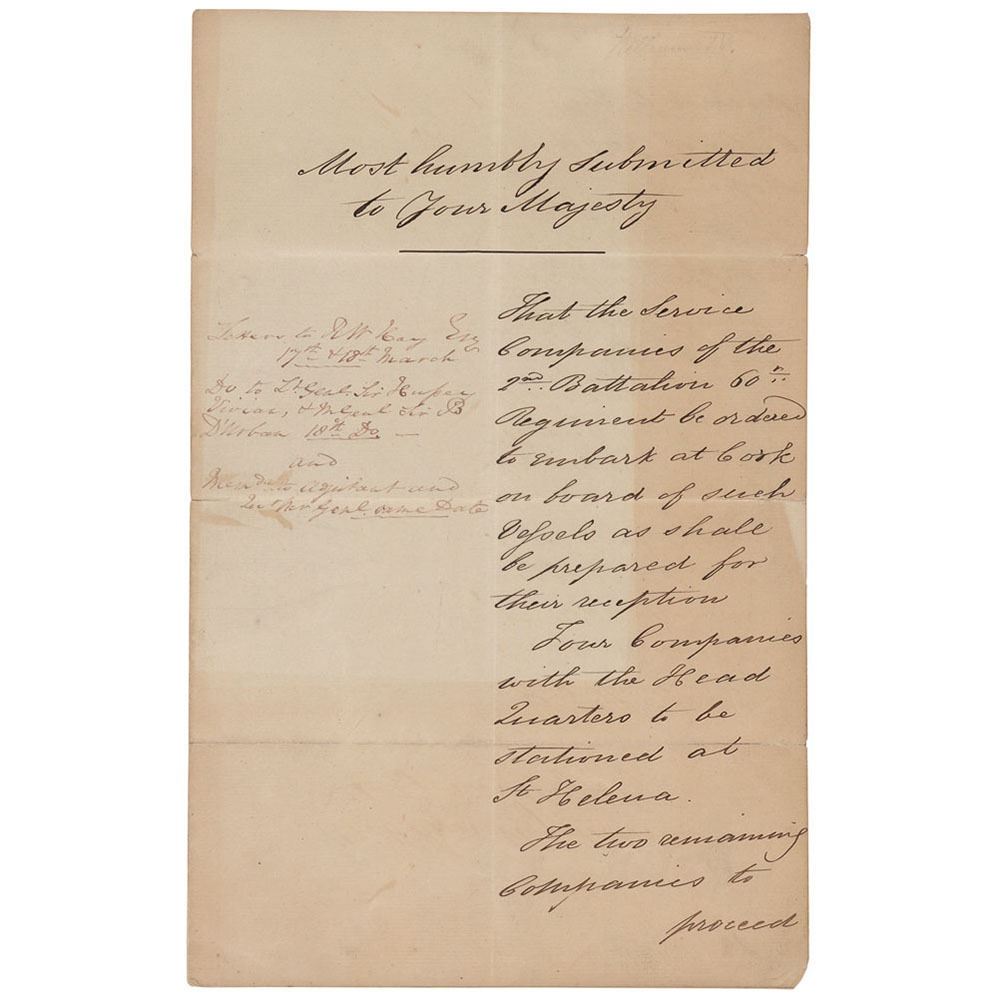 Most humbly Submitted
to Your Majesty
Letters to R W Hay Esq
17th & 18th March
Do to Lt. Genl. Sir Hussey
Vivian, & M Genl Sir B
D'Urban 18th Do. —
and
Memdm to Adjutant and
Qur Mr Genl. same Date
That the Service
Companies of the
2nd. Battalion 60th.
Regiment be ordered
to embark at Cork
on board of such
Vessels as shall
be prepared for
their reception
Four Companies
with the Head
Quarters to be
stationed at
St Helena.
The two remaining
Companies to
proceed